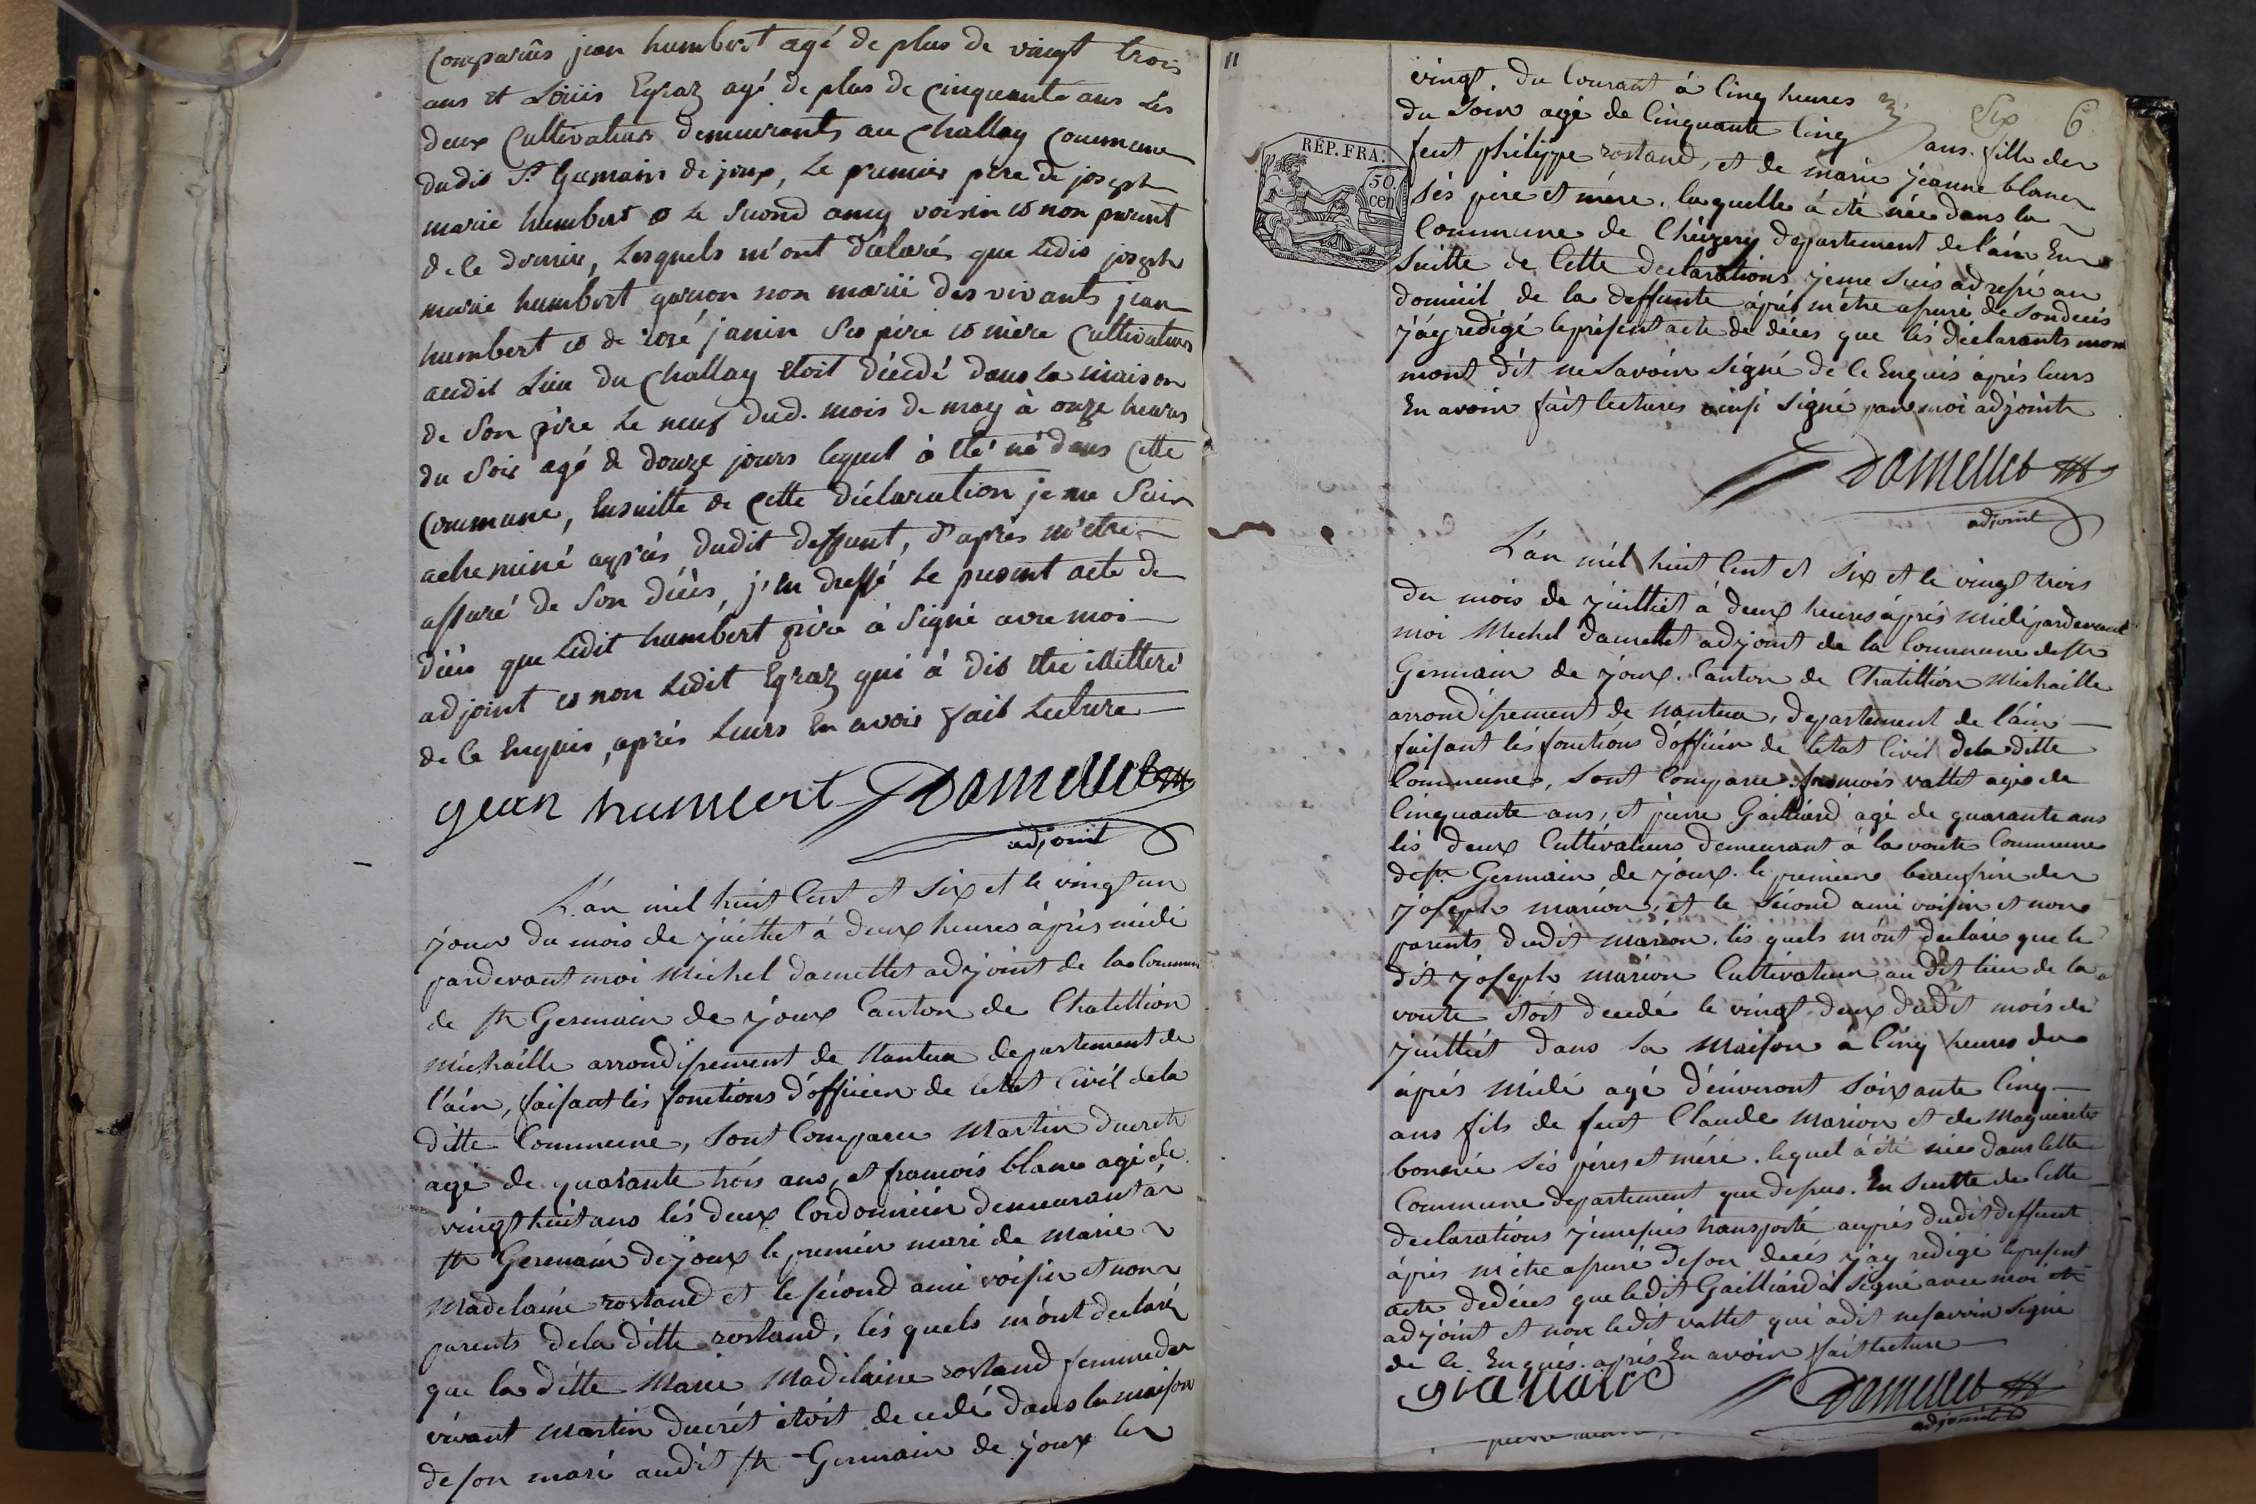 Comparûs jean humbert agé de plus de vingt trois
ans et Loüis Egraz agé de plus de Cinquante ans Les
deux Cultivateurs demeurants au Challay Commune
dudit St Germain de joux, Le premier pere de joseph
marie humbert et Le Second amy voisin et non parent
de le dernier, Lesquels m'ont déclaré que Ledit joseph
marie humbert garçon non marié des vivants jean
humbert et de rosé janin Ses père et mère Cultivateurs
audit Lieu du Challay étoit décédé dans La maison
de Son père Le neuf dud. mois de may à onze heures
du Soir agé de douze jours lequel à été né dans Cette
Commune, Ensuitte de Cette déclaration je me Suis
acheminé auprès dudit deffunt, d'après m'etre
assuré de Son décès, j'en dressé Le present acte de
décès que Ledit humbert père à Signé avec moi
adjoint et non Ledit Egraz qui à dit etre illetteré
de Ce Enquis, après Leurs En avoir fait Lecture
jean humbert Damellet
adjoint
L'an mil huit Cent et Six et le vingt un
jour du mois de juillet à deux heures après midi
pardevant moi Michel damellet adjoint de la Commune
de St Germain de joux Canton de Chatillion
michaille arrondissement de Nantua departement de
l'ain, faisant les fonctions d'officier de l'etat Civil de la
ditte Commune, sont Comparu Martin ducret
agé de quarante trois ans, et francois blanc agé de
vingt huit ans lés deux Cordonnier demeurant à
St Germain de joux le premier mari de marie
Madelaine rostand et le sécond ami voisin et non
parents de la ditte rostand, lés quels m'ont declaré
que la ditte Marie Madelaine rostand femme de
vivant Martin ducrét étoit decedé dans la maison
de son mari audit St Germain de joux le
11
vingt du Courant à Cinq heures
Six 6
du Soir agé de Cinquante Cinq ans. fille de
RÉP. FRA.
50.
cen
feut philippe rostand, et de marie jeanne blanc
sés père et mère. laquelle à été née dans la
Commune de Chézery departement de l'ain En
Suitte de Cette declarations je me suis adressé au
domicil de la deffunte àprés m'etre assuré de son decés
j'ay redigé le présent acte de décés que lés déclarants mon
mont dit ne Savoir Signé de Ce Enquis àprés leurs
En avoir fait lectures ainsi Signé par moi adjoint
Damellet
adjoint
L'an mil huit Cent et Six et le vingt trois
du mois de juilliet à deux heures àprés midi pardevant
moi Michel damellet adjoint de la Commune de St
Germain de joux. Canton de Chatillion Michaille
arrondissement de Nantua, departement de l'ain
faisant lés fonctions d'officier de l'etat Civil de la ditte
Commune, Sont Comparu francois vallet agé de
Cinquante ans, et pierre Gailliard agé de quarante ans
lés deux Cultivateurs demeurant à la voute Commune
de St Germain de joux. le premier beaufrere de
joseph marion, et le sécond ami voisin et non
parents dudit marion. lés quels m'ont declaré que le
dit joseph marion Cultivateur audit lieu de la
voute étoit decedé le vingt deux dudit mois de
juilliet dans sa maison à Cinq heures du
àprés midi agé d'énviront soixante Cinq
ans fils de feut Claude marion et de Maguirite
bonnée sés péres et mére. lequel à été née dans Cette
Commune departement que dessus. En Suitte de Cette
declarations je me suis transporté auprés dudit deffunt
àprés m'etre assuré de son decés j'ay redigé le present
acte de décés que ledit Gailliard à signé avec moi
adjoint et non ledit vallet qui à dit ne savoir Signé
de Ce Enqués. aprés En avoir fait lecture
Damellet
adjoint